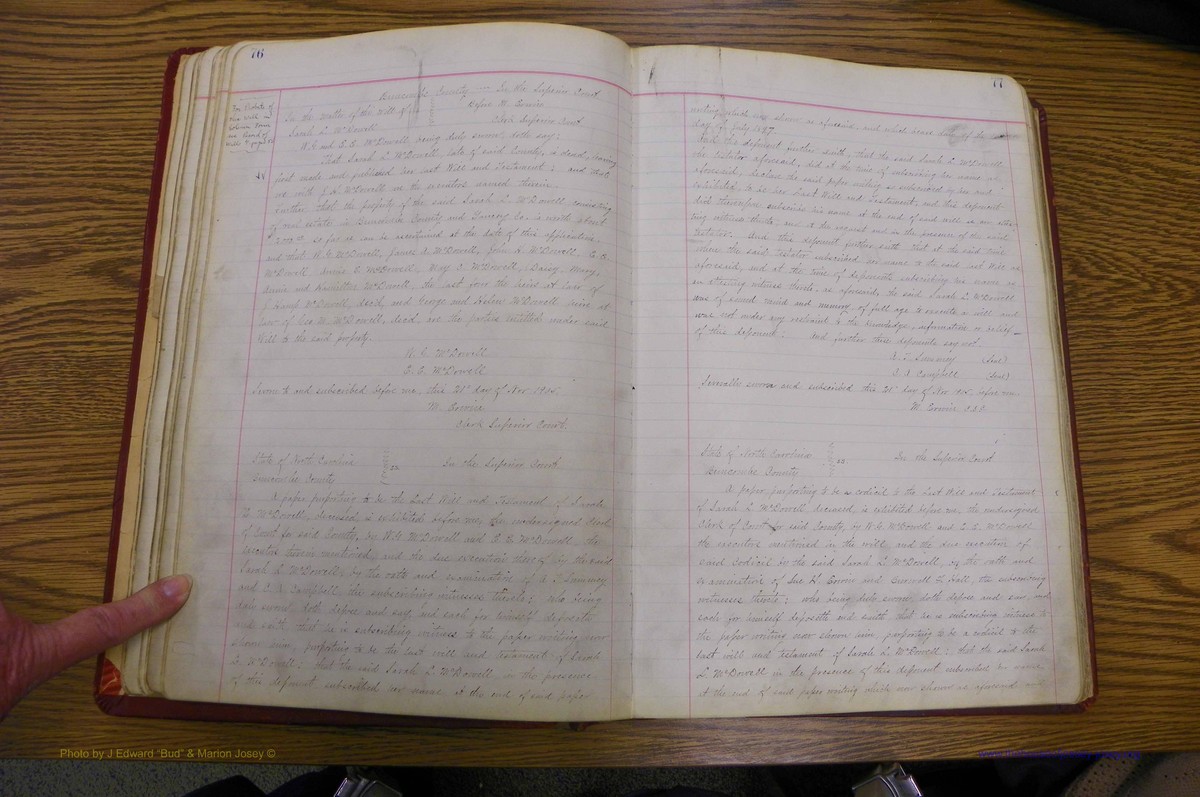 76
Buncombe County — In the Superior Court
In the matter of the will of Before M. Erwin
Sarah L. McDowell Clerk Superior Court
W. G. and E. E. McDowell being duly sworn, doth say:
That Sarah L. McDowell, late of said County, is dead, having
first made and published her last Will and Testament: and that
are the executors named therein.
Further, that the property of the said Sarah L. McDowell, consisting
of real estate in Buncombe County and Co. is worth about
so far as can be ascertained at the date of this application
and that W. G. McDowell, James A. McDowell, John A. McDowell, E. E.
McDowell, Annie E. McDowell, Mary McDowell, Daisy, Mary,
Annie and Hamilton McDowell, the last four the heirs at law of
McDowell, decd, and George and McDowell heirs at
law of Geo. M. McDowell, decd, are the parties entitled under said
Will to the said property.
W. G. McDowell
E. E. McDowell
Sworn to and subscribed before me, this 21st day of Nov 1905.
M. Erwin
Clerk Superior Court.
State of North Carolina
ss. In the Superior Court
Buncombe County
A paper purporting to be the Last Will and Testament of Sarah
L. McDowell, deceased, is exhibited before me, the undersigned Clerk
of Court for said County, by W. G. McDowell and E. E. McDowell, the
executors therein mentioned, and the due execution thereof by the said
Sarah L. McDowell, by the oath and examination of
and C. A. Campbell the subscribing witnesses thereto; who being
duly sworn, doth depose and say, and each for himself deposeth
and saith, that he is subscribing witness to the paper writing now
shown him, purporting to be the last will and testament of Sarah
L. McDowell; that the said Sarah L. McDowell, in the presence
of this deponent, subscribed her name at the end of said paper
77
writing which now shown as aforesaid, and which bears date of the
day of July 1887.
And the deponent further saith, that the said Sarah L. McDowell
the testator aforesaid, did at the time of subscribing her name as
aforesaid, declare the said paper writing so subscribed by her and
exhibited to be her Last Will and Testament, and this deponent
did thereupon subscribe his name at the end of said will as an attes-
ting witness thereto, and at the request and in the presence of the said
testator. And this deponent further saith that at the said time
when the said testator subscribed her name to the said last Will as
aforesaid, and at the time of deponents subscribing his name as
an attesting witness thereto, as aforesaid, the said Sarah L. McDowell
was of sound mind and memory, of full age to execute a will and
was not under any restraint to the knowledge, information or belief
of this deponent. And further these deponents say not.
(Seal)
C. A. Campbell (Seal)
Severally sworn and subscribed this 21st day of Nov 1905, before me.
M. Erwin C.S.C.
State of North Carolina
ss. In the Superior Court
Buncombe County
A paper purporting to be a codicil to the Last Will and Testament
of Sarah L. McDowell deceased is exhibited before me, the undersigned
Clerk of Court for said County, by W. G. McDowell and E. E. McDowell
the executors mentioned in the will, and the due execution of
said Codicil by the said Sarah L. McDowell, by the oath and
examination of Sue L. Erwin and Hall, the subscribing
witnesses thereto; who being duly sworn, doth depose and say, and
each for himself deposeth and saith that he is subscribing witness to
the paper writing now shown him, purporting to be a codicil to the
last will and testament of Sarah L. McDowell; that the said Sarah
L. McDowell in the presence of this deponent subscribed her name
at the end of said paper writing which now shown as aforesaid
Photo by J Edward "Bud" & Marion Josey ©